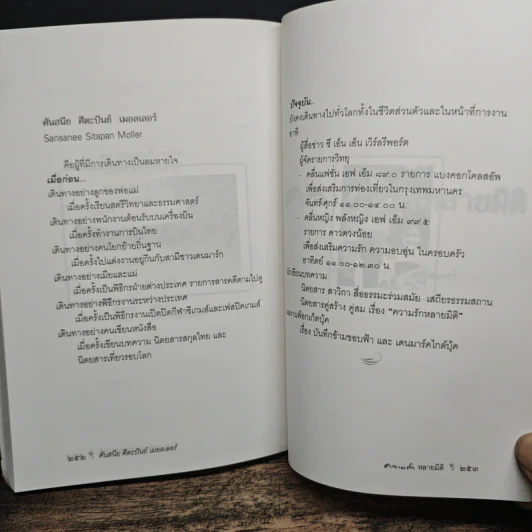 ศันสนีย สีตะปันย์ เมอลเลอร์
Sansanee Sitapan Moller
คือผู้ที่มีการเดินทางเป็นลมหายใจ
เมื่อก่อน...
เดินทางอย่างลูกของพ่อแม่
เมื่อครั้งเรียนสตรีวิทยาและธรรมศาสตร์
เดินทางอย่างพนักงานต้อนรับบนเครื่องบิน
เมื่อครั้งทำงานการบินไทย
เดินทางอย่างคนโยกย้ายถิ่นฐาน
เมื่อครั้งไปแต่งงานอยู่กินกับสามีชาวเดนมาร์ค
เดินทางอย่างเมียและแม่
เมื่อครั้งเป็นพิธีกรฝ่ายต่างประเทศ รายการสารคดีตามไปดู
เดินทางอย่างพิธีกรงานระหว่างประเทศ
เมื่อครั้งเป็นพิธีกรงานเปิดปิดกีฬาซีเกมส์และเฟสปิคเกมส์
เดินทางอย่างคนเขียนหนังสือ
เมื่อครั้งเขียนบทความ นิตยสารสกุลไทย และ
นิตยสารเที่ยวรอบโลก
๒๕๒ ศันสนีย สีตะปันย์ เมอลเลอร์
ปัจจุบัน..
ยังคงเดินทางไปทั่วโลกทั้งในชีวิตส่วนตัวและในหน้าที่การงาน
อาทิ
ผู้สื่อข่าว ซี เอ็น เอ็น เวิร์ลรีพอร์ต
ผู้จัดรายการวิทยุ
- คลื่นแฟชั่น เอฟ เอ็ม ๘๙.๐ รายการ แบงคอกโคลสอัพ
เพื่อส่งเสริมการท่องเที่ยวในกรุงเทพมหานคร
จันทร์-ศุกร์ ๑๑.๐๐-๑๒.๐๐ น.
- คลื่นหญิง พลังหญิง เอฟ เอ็ม ๙๙.๕
รายการ ดาวดวงน้อย
เพื่อส่งเสริมความรัก ความอบอุ่น ในครอบครัว
อาทิตย์ ๑๑.๐๐-๑๒.๓๐ น.
นักเขียนบทความ
นิตยสาร สาวิกา สื่อธรรมะร่วมสมัย เสถียรธรรมสถาน
นิตยสารคู่สร้าง คู่สม เรื่อง "ความรักหลายมิติ"
และพ็อกเก็ตบุ๊ค
เรื่อง บันทึกข้ามขอบฟ้า และ เดนมาร์คไกด์บุ๊ค
ความรัก หลายมิติ ๒๕๓